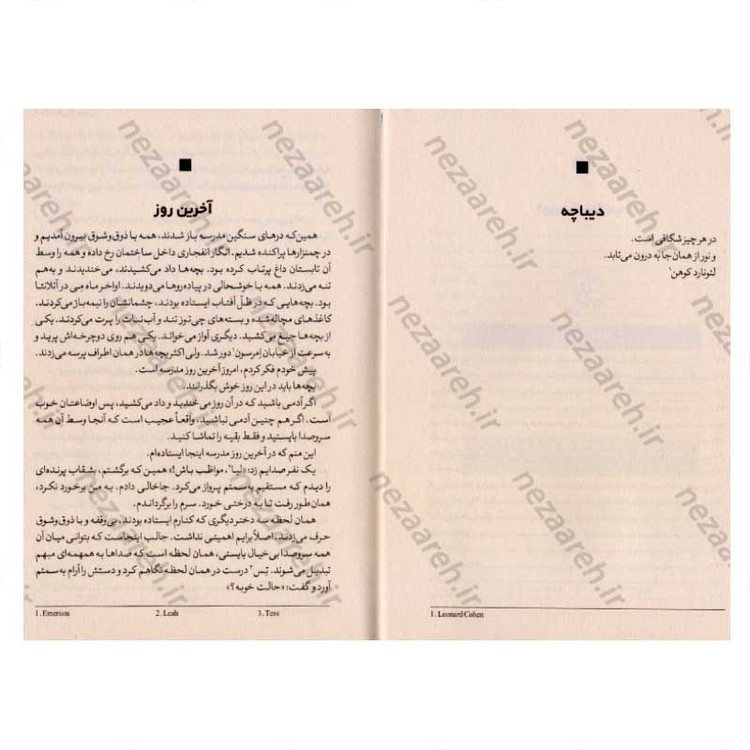 دیباچه
در هر چیز شگافی است.
و نور از همان جا به درون می‌تابد.
لئونارد کوهن¹
1. Leonard Cohen
آخرین روز
همین‌که درهای سنگین مدرسه باز شدند، همه با ذوق‌وشوق بیرون آمدیم و
در چمنزارها پراکنده شدیم. انگار انفجاری داخل ساختمان رخ داده و همه را وسط
آن تابستان داغ پرتاب کرده بود. بچه‌ها داد می‌کشیدند، می‌خندیدند و به‌هم
تنه می‌زدند. همه با خوشحالی در پیاده‌روها می‌دویدند. اواخر ماه مِی در آتلانتا
بود. بچه‌هایی که در ظلّ آفتاب ایستاده بودند، چشمانشان را نیمه‌باز می‌کردند.
کاغذهای مچاله‌شده و بسته‌های چی‌توز تند و آب‌نبات را پرت می‌کردند. یکی
از بچه‌ها جیغ می‌کشید. دیگری آواز می‌خواند. یکی هم روی دوچرخه‌اش پرید و
به سرعت از خیابان اِمرسون¹ دور شد. ولی اکثر بچه‌ها در همان اطراف پرسه می‌زدند.
پیش خودم فکر کردم، امروز آخرین روز مدرسه است.
بچه‌ها باید در این روز خوش بگذرانند.
اگر آدمی باشید که در آن روز می‌خندید و داد می‌کشید، پس اوضاعتان خوب
است. اگر هم چنین آدمی نباشید، واقعاً عجیب است که آنجا وسط آن همه
سروصدا بایستید و فقط بقیه را تماشا کنید.
این منم که در آخرین روز مدرسه اینجا ایستاده‌ام.
یک نفر صدایم زد: «لیا²، مواظب باش!» همین که برگشتم، بشقاب پرنده‌ای
را دیدم که مستقیم به‌سمتم پرواز می‌کرد. جاخالی دادم. به من برخورد نکرد،
همان‌طور رفت تا به درختی خورد. سرم را برگرداندم.
همان لحظه سه دختر دیگری که کنارم ایستاده بودند، بی‌وقفه و با ذوق‌وشوق
حرف می‌زدند. اصلاً برایم اهمیتی نداشت. جالب اینجاست که بتوانی میان آن
همه سروصدا بی‌خیال بایستی، همان لحظه است که صداها به همهمه‌ای مبهم
تبدیل می‌شوند. تِس³ درست در همان لحظه نگاهم کرد و دستش را آرام به‌سمتم
آورد و گفت: «حالت خوبه؟»
1. Emerson 2. Leah 3. Tess
nezaareh.ir